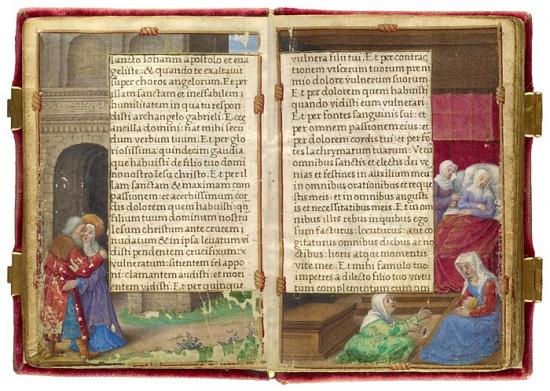 sancto Iohanni apostolo et eua
geliste: & quando te exaltauit
super choros angelorum. Et per
illam sanctam et ineffabilem
humilitatem in qua tu respon
disti archangelo gabrieli. Ecce
ancilla domini: fiat mihi secū
dum verbum tuum. Et per glo
riosissima quindecim gaudia
que habuisti de filio tuo domi
no nostro Iesu christo. Et per il
lam sanctam & maximam com
passionem: et acerbissimum cor
dis dolorem quem habuisti: qn̄
filium tuum dominum nostrū
Iesum christum ante crucem
nudatum & in ipsa leuatum vi
disti pendentem crucifixum:
vulneratum: sitientem fel appo
ni: clamantem audisti: et mori
entem vidisti. Et per quinque
vulnera filii tui. Et per contrac
tionem viscerum tuorum pre ni
mio dolore vulnerum suorum
Et per dolorem quem habuisti
quando vidisti eum vulnerari
Et per fontes sanguinis sui: et
per omnem passionem eius: et
per dolorem cordis tui: et per fō
tes lachrymarum tuarum: Vt cū
omnibus sanctis et electis dei ve
nias et festines in auxilium meū
in omnibus orationibus et reque
stis meis: et in omnibus angusti
is et necessitatibus meis. Et in om
nibus illis rebus in quibus ego
sum facturus: locuturus: aut co
gitaturus omnibus diebus ac no
ctibus: horis atque momentis
vite mee. Et mihi famulo tuo
impetres a dilecto filio tuo virtu
tum complementum cum om